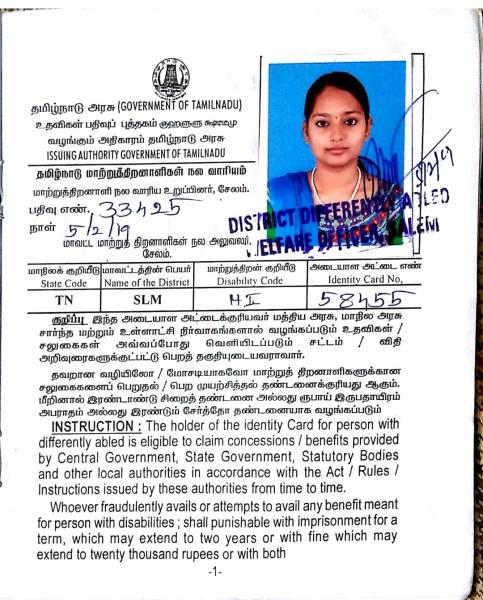 தமிழ்நாடு அரசு (GOVERNMENT OF TAMILNADU)
உதவிகள் பதிவுப் புத்தகம்
வழங்கும் அதிகாரம் தமிழ்நாடு அரசு
ISSUING AUTHORITY GOVERNMENT OF TAMILNADU
தமிழ்நாடு மாற்றுத்திறனாளிகள் நல வாரியம்
மாற்றுத்திறனாளி நல வாரிய உறுப்பினர், சேலம்.
பதிவு எண். 33425
நாள் 5/2/19
மாவட்ட மாற்றுத் திறனாளிகள் நல அலுவலர்,
சேலம்.
DISTRICT DIFFERENTLY ABLED
WELFARE OFFICER, SALEM
மாநிலக் குறியீடு மாவட்டத்தின் பெயர் மாற்றுத்திறன் குறியீடு அடையாள அட்டை எண்
State Code Name of the District Disability Code Identity Card No,
TN SLM HI 58455
குறிப்பு இந்த அடையாள அட்டைக்குரியவர் மத்திய அரசு, மாநில அரசு
சார்ந்த மற்றும் உள்ளாட்சி நிர்வாகங்களால் வழங்கப்படும் உதவிகள் /
சலுகைகள் அவ்வபோது வெளியிடப்படும் சட்டம் / விதி
அறிவுரைகளுக்குட்பட்டு பெறத் தகுதியுடையவராவார்.
தவறான வழியிலோ / மோசடியாகவோ மாற்றுத் திறனாளிகளுக்கான
சலுகைகளைப் பெறுதல் / பெற முயற்சித்தல் தண்டனைக்குரியது ஆகும்.
மீறினால் இரண்டாண்டு சிறைத் தண்டனை அல்லது ரூபாய் இருபதாயிரம்
அபராதம் அல்லது இரண்டும் சேர்த்தோ தண்டனையாக வழங்கப்படும்
INSTRUCTION : The holder of the identity Card for person with
differently abled is eligible to claim concessions / benefits provided
by Central Government, State Government, Statutory Bodies
and other local authorities in accordance with the Act / Rules /
Instructions issued by these authorities from time to time.
Whoever fraudulently avails or attempts to avail any benefit meant
for person with disabilities ; shall punishable with imprisonment for a
term, which may extend to two years or with fine which may
extend to twenty thousand rupees or with both
-1-